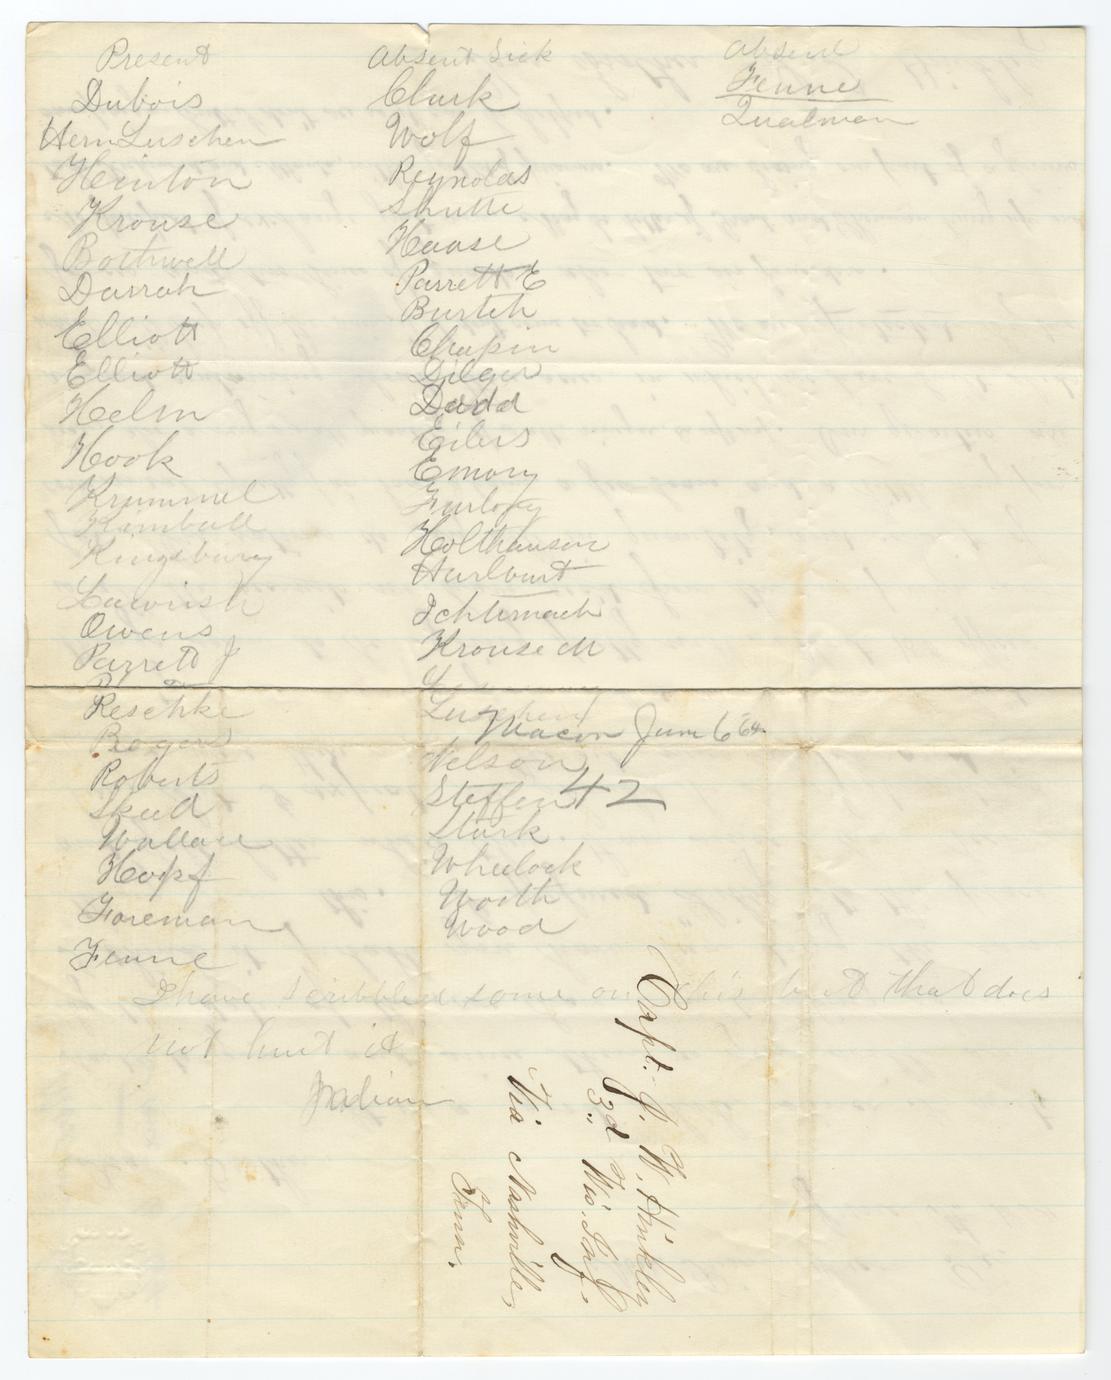 Present
Dubois
Hern Luschen
Heinton
Krouse
Bothwell
Darrah
Elliott
Elliott
Helm
Hook
Krummel
Kimball
Kingsbury
Owens
Parrett J
Reschke
Rogers
Roberts
Skeed
Wallace
Hopf
Foreman
Fenne
Absent Sick
Clark
Wolf
Reynolds
Shutte
Haase
Parrett E
Burtch
Chapin
Dilger
Dodd
Eilers
Emory
Furlong
Holthausen
Hurlburt
Ichtemach
Krouse M
Luschen
Macon June 6 64
Nelson
Steffen 42
Stark
Wheelock
Worth
Wood
Absend
Fenne
Qualman
I have scribbled some on this but that does
not hurt it
Capt. J. W. Hinkley
3d Wis. Inf.
Via Nashville,
Tenn.